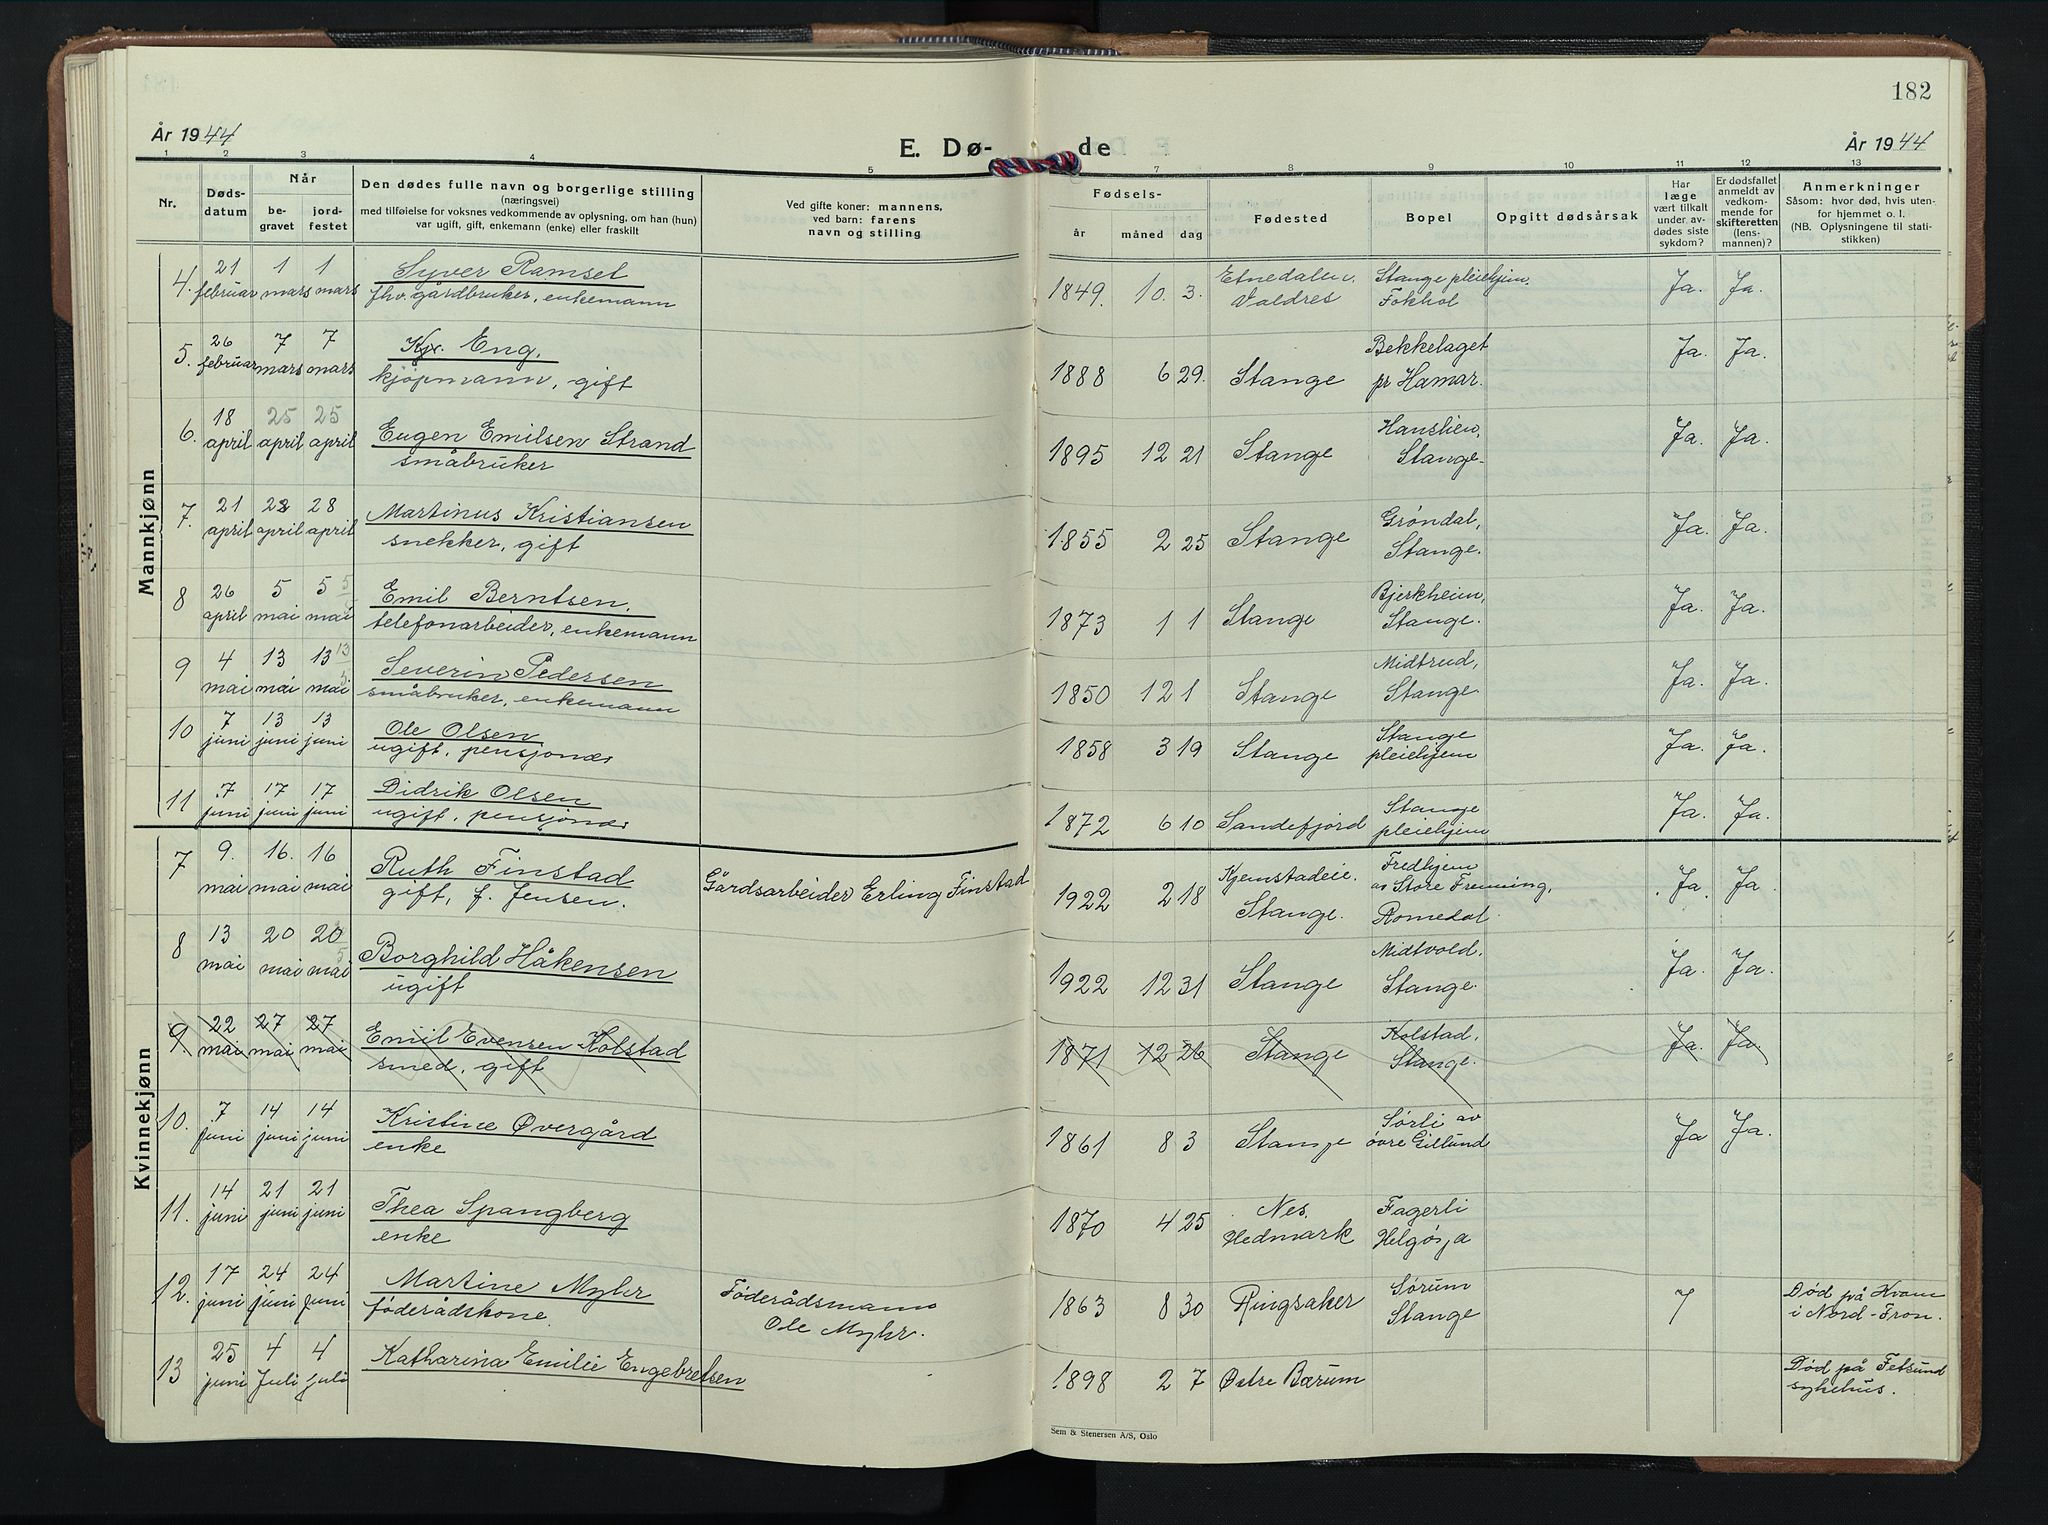 182
År 1944
E. Dø-
de
År 1944
1 2 3 4 5 7 8 9 10 11 12 13
Nr.
Døds-
datum
Når
be-
gravet
jord-
festet
Den dødes fulle navn og borgerlige stilling
(næringsvei)
med tilføielse for voksnes vedkommende av oplysning, om han (hun)
var ugift, gift, enkemann (enke) eller fraskilt
Ved gifte koner: mannens,
ved barn: farens
navn og stilling
Fødsels-
år måned dag
Fødested
Bopel
Opgitt dødsårsak
Har
læge
vært tilkalt
under av-
dødes siste
sykdom?
Er dødsfallet
anmeldt av
vedkom-
mende for
skifteretten
(lens-
mannen)?
Anmerkninger
Såsom: hvor død, hvis uten-
for hjemmet o. l.
(NB. Oplysningene til stati-
stikken)
Mannkjønn
4. 21 februar 1 mars 1 mars Syver Ramset 1849. 10. 3. Etnedalen, Stange pleiehjem. Ja. Ja.
fhv. gårdbruker, enkemann Valdres Fokhol
5. 26 februar 7 mars 7 mars Kr. Eng. 1888 6 29. Stange Bekkelaget Ja. Ja.
kjøpmann, gift pr Hamar.
6. 18 april 25 april 25 april Eugen Emilsen Strand 1895 12 21 Stange Hanslien, Ja. Ja.
småbruker Stange.
7. 21 april 28 april 28 april Martinus Kristiansen 1855 2 25 Stange Grøndal, Ja. Ja.
snekker, gift Stange.
8 26 april 5 mai 5 mai 5/5 Emil Berntsen. 1873 1 1 Stange Bjerkheim, Ja. Ja.
telefonarbeider, enkemann Stange.
9 4 mai 13 mai 13 mai 13/5 Severin Pedersen 1850 12 1 Stange Midtrud, Ja. Ja.
småbruker, enkemann Stange.
10 7 juni 13 juni 13 juni Ole Olsen 1858 3 19 Stange Stange Ja. Ja.
ugift, pensjonær pleiehjem
11 7 juni 17 juni 17 juni Didrik Olsen 1872 6 10 Sandefjord Stange Ja. Ja.
ugift, pensjonær pleiehjem
Kvinnekjønn
7 9. mai 16. mai 16 mai Ruth Finstad Gårdsarbeider Erling Finstad 1922 2 18 Kjemstadeie. Fredhjem Ja. Ja.
gift, f. Jensen. Stange. av Store Frenning,
Romedal.
8 13 mai 20 mai 20 mai Borghild Håkensen 1922 12 31 Stange Midtvold. Ja. Ja.
ugift Stange.
9. 22 mai 27 mai 27 mai Emil Evensen Kolstad 1871 12 26 Stange Kolstad, Ja. Ja.
smed, gift Stange.
10. 7 juni 14 juni 14 juni Kristine Øvergård 1861 8 3 Stange Sørli av Ja Ja.
enke øvre Gillund
11. 14 juni 21 juni 21 juni Thea Spangberg 1870 4 25 Nes. Fagerli
enke Hedmark Helgøya
12. 17 juni 24 juni 24 juni Martine Myhr Føderådsmann 1863 8 30 Ringsaker Sørum 7 Død på Kvam
føderådskone. Ole Myhr. Stange i Nord-Fron.
13 25 juni 4 Juli 4 juli Katharina Emilie Engebretsen 1898 2 7 Østre Bærum Død på Fetsund
sykehus.
Sem & Stenersen A/S, Oslo